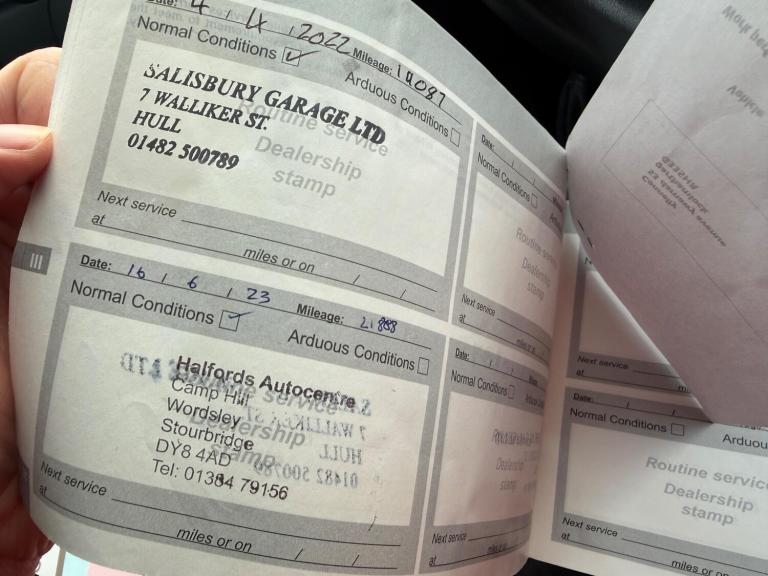 Date: 4 / 4 / 2022 Mileage:
Normal Conditions
Arduous Conditions
Routine service
Dealership
stamp
SALISBURY GARAGE LTD
7 WALLIKER ST.
HULL
01482 500789
Next service
at
miles or on / /
Date: 16 / 6 / 23 Mileage:
Normal Conditions
Arduous Conditions
Dealership
stamp
Halfords Autocentre
Camp Hill
Wordsley
Stourbridge
DY8 4AD
Tel: 01384 79156
Next service
at
miles or on / /
Date:
Normal Conditions
Routine
Dealership
stamp
Next service
at
miles or on
Date:
Normal Conditions
Dealership
stamp
Next service
at
Next service
at
Date:
Normal Conditions
Arduous
Routine service
Dealership
stamp
Next service
at
miles or on